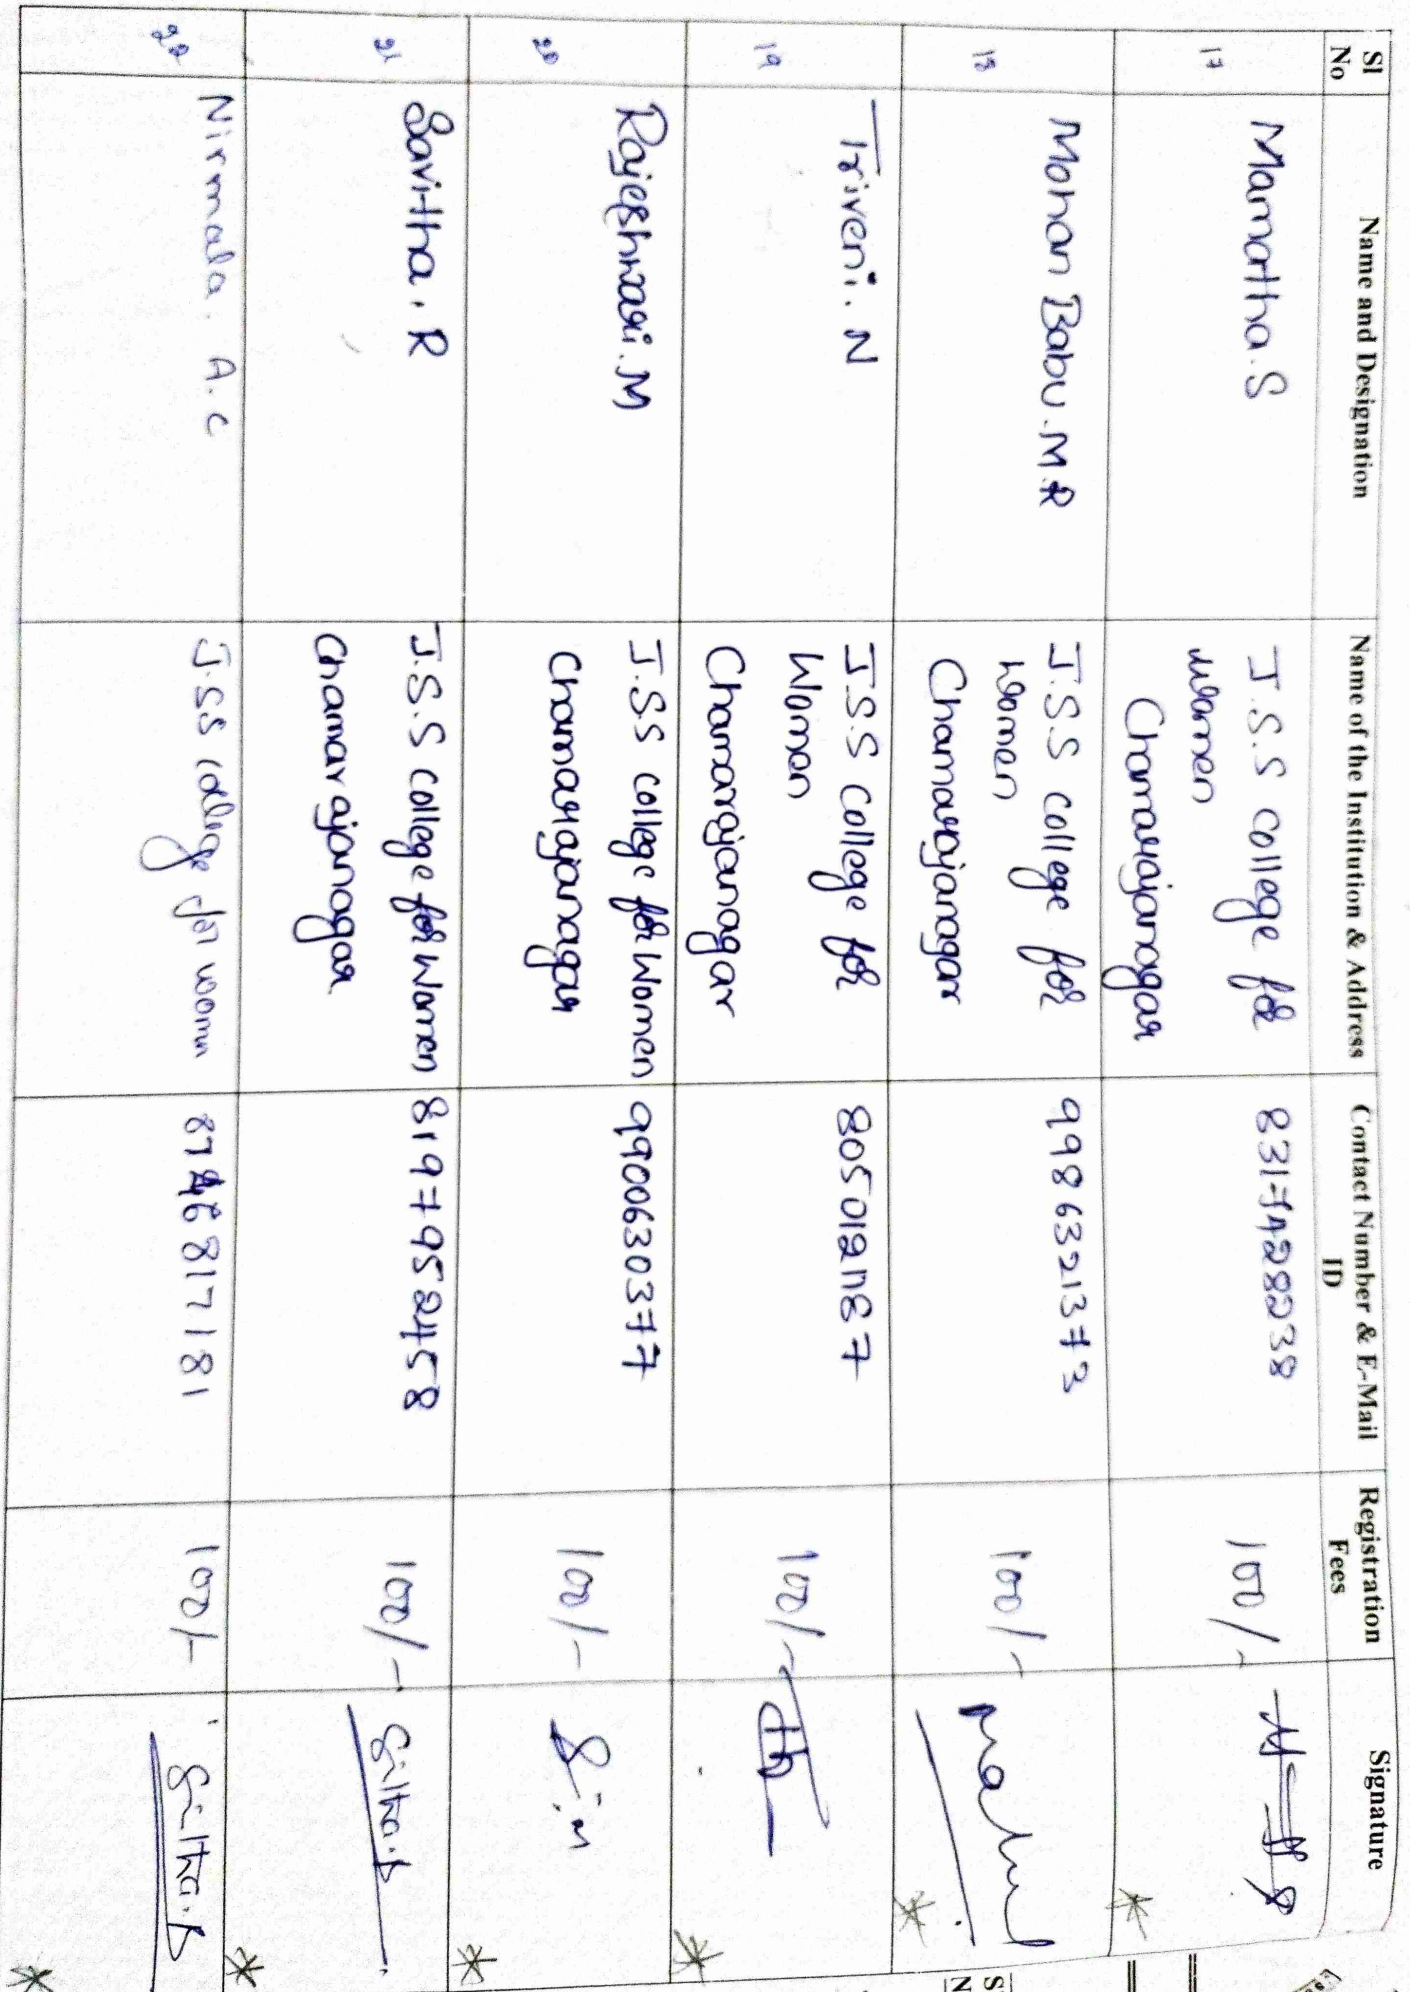 Sl No Name and Designation Name of the Institution & Address Contact Number & E-Mail ID Registration Fees Signature
17 Mamatha.S J.S.S college for women Chamarajanagar 8317428238 100/-
18 Mohan Babu.M.R J.S.S college for women Chamarajanagar 9986321373 100/-
19 Triveni.N J.S.S College for Women Chamarajanagar 100/-
20 Rajeshwari.M J.SS college for Women Chamarajanagar 9900630377 100/-
21 Savitha.R J.S.S college for Women Chamarajanagar 8197952458 100/-
22 Nirmala. A.C J.SS college for women 100/-